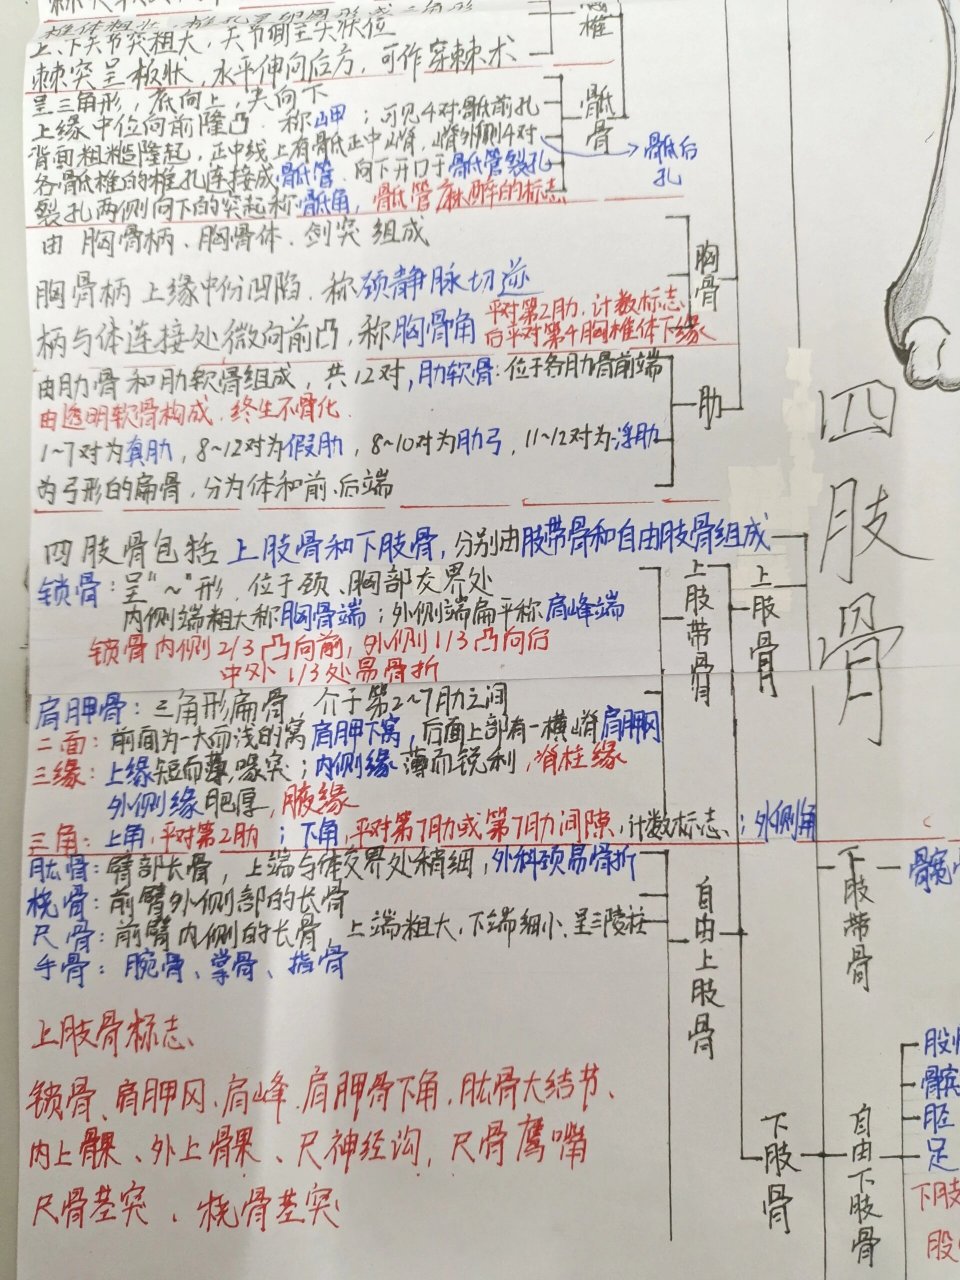 上、下关节突粗大，关节面呈矢状位
棘突呈板状，水平伸向后方，可作穿棘术
椎
呈三角形，底向上，尖向下
上缘中位向前隆凸，称山甲；可见4对骶前孔
背面粗糙隆起，正中线上有骨骶正中嵴，嵴外侧4对
骶后孔
各骶椎的椎孔连接成骶管，向下开口于骶管裂孔
裂孔两侧向下的突起称骶角，骶管麻醉的标志
骶骨
由胸骨柄、胸骨体、剑突组成
胸骨柄上缘中份凹陷，称颈静脉切迹
柄与体连接处微向前凸，称胸骨角
平对第2肋，计数标志
后平对第4胸椎体下缘
胸骨
由肋骨和肋软骨组成，共12对，肋软骨：位于各肋骨前端
由透明软骨构成，终生不骨化
1~7对为真肋，8~12对为假肋，8~10对为肋弓，11~12对为浮肋
为弓形的扁骨，分为体和前、后端
肋
四肢骨
四肢骨包括上肢骨和下肢骨，分别由肢带骨和自由肢骨组成
锁骨：呈"~"形，位于颈、胸部交界处
内侧端粗大称胸骨端；外侧端扁平称肩峰端
锁骨内侧2/3凸向前，外侧1/3凸向后
中外1/3处易骨折
肩胛骨：三角形扁骨 介于第2~7肋之间
二面：前面为一大而浅的窝肩胛下窝，后面上部有一横嵴肩胛冈
三缘：上缘短而薄，喙突；内侧缘薄而锐利，脊柱缘
外侧缘肥厚，腋缘
三角：上角，平对第2肋；下角，平对第7肋或第7肋间隙，计数标志；外侧角
上肢带骨
上肢骨
肱骨：臂部长骨，上端与体交界处稍细，外科颈易骨折
桡骨：前臂外侧部的长骨
尺骨：前臂内侧的长骨 上端粗大，下端细小，呈三陵柱
手骨：腕骨、掌骨、指骨
自由上肢骨
上肢骨标志
锁骨、肩胛冈、肩峰、肩胛骨下角、肱骨大结节、
内上髁、外上髁、尺神经沟，尺骨鹰嘴
尺骨茎突、桡骨茎突
下肢带骨
髋
下肢骨
自由下肢骨
股
髌
胫
足
下肢
股